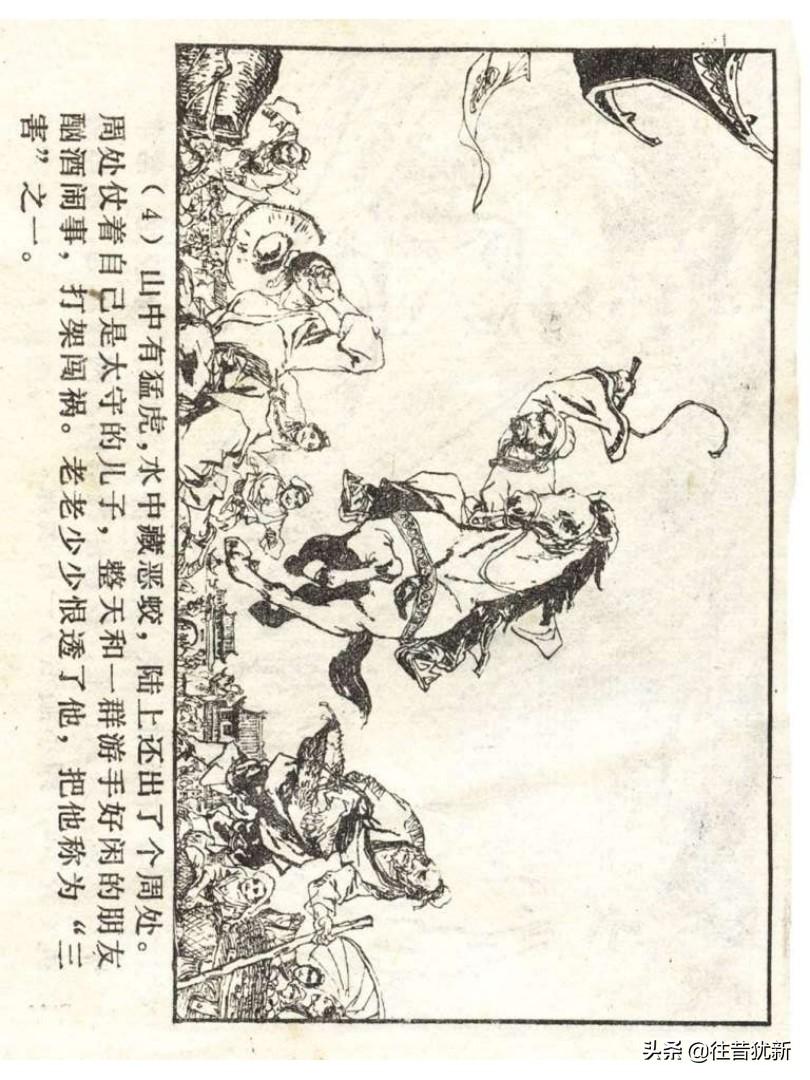 （4）山中有猛虎，水中藏恶蛟，陆上还出了个周处。
周处仗着自己是太守的儿子，整天和一群游手好闲的朋友
酗酒闹事，打架闯祸。老老少少恨透了他，把他称为“三
害”之一。
头条 @往昔犹新